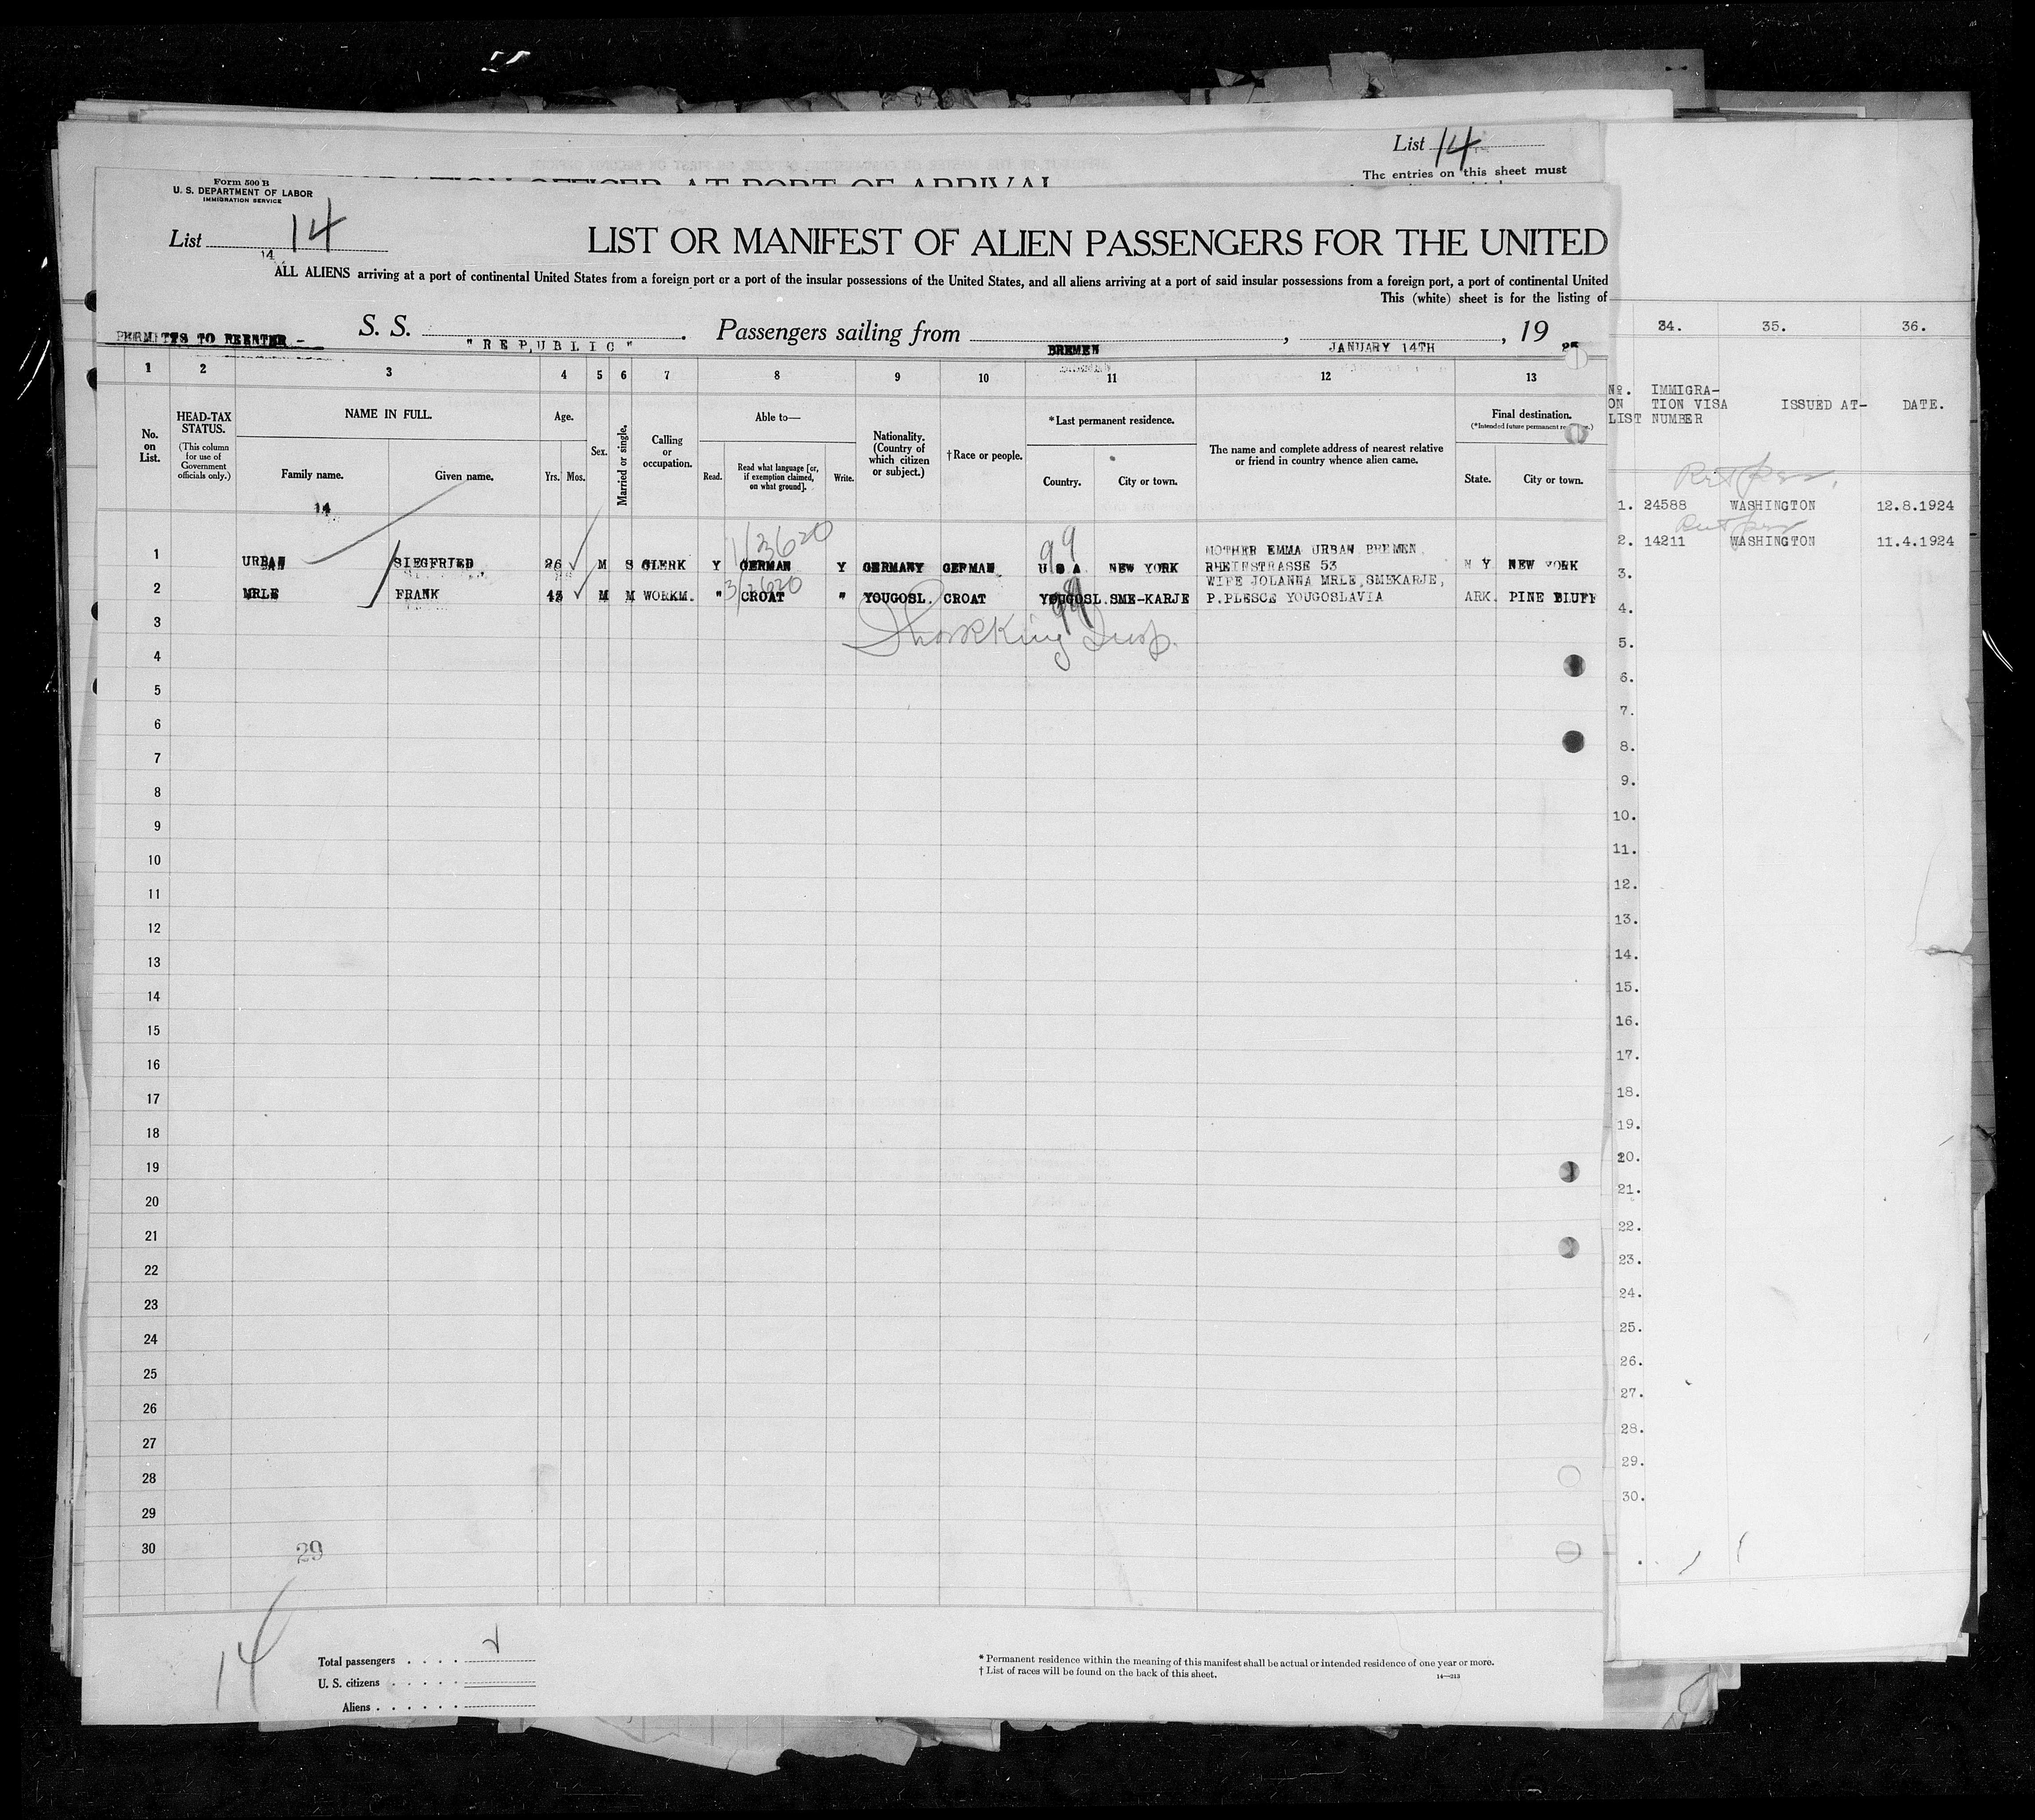 List 14
The entries on this sheet must
Form 500 B
U. S. DEPARTMENT OF LABOR
IMMIGRATION SERVICE
List 14
14
LIST OR MANIFEST OF ALIEN PASSENGERS FOR THE UNITED
ALL ALIENS arriving at a port of continental United States from a foreign port or a port of the insular possessions of the United States, and all aliens arriving at a port of said insular possessions from a foreign port, a port of continental United
This (white) sheet is for the listing of
PERMITTS TO REENTER.-
S. S. "REPUBLIC". Passengers sailing from BREMEN, JANUARY 14TH, 1925
1 2 3 4 5 6 7 8 9 10 11 12 13
No. on List.
HEAD-TAX STATUS.
(This column for use of Government officials only.)
NAME IN FULL.
Family name. Given name.
14
Age.
Yrs. Mos.
Sex.
Married or single.
Calling or occupation.
Able to—
Read. Read what language [or, if exemption claimed, on what ground]. Write.
Nationality. (Country of which citizen or subject.)
†Race or people.
*Last permanent residence.
Country. City or town.
The name and complete address of nearest relative or friend in country whence alien came.
Final destination.
State. City or town.
1 URBAN SIEGFRIED 26 M S CLERK Y GERMAN Y GERMANY GERMAN U S A NEW YORK MOTHER EMMA URBAN BREMEN RHEINSTRASSE 53 N Y NEW YORK
99
2 MRLE FRANK 43 M M WORKM. " CROAT " YOUGOSL. CROAT YOUGOSL. SME-KARJE WIFE JOLANNA MRLE, SMEKARJE, P.PLESCE YOUGOSLAVIA ARK. PINE BLUFF
99
3
4
5
6
7
8
9
10
11
12
13
14
15
16
17
18
19
20
21
22
23
24
25
26
27
28
29
30
29
14
Total passengers
U. S. citizens
Aliens
* Permanent residence within the meaning of this manifest shall be actual or intended residence of one year or more.
† List of races will be found on the back of this sheet.
14—213
34. 35. 36.
No. ON LIST IMMIGRATION VISA NUMBER ISSUED AT- DATE.
1. 24588 WASHINGTON 12.8.1924
2. 14211 WASHINGTON 11.4.1924
3.
4.
5.
6.
7.
8.
9.
10.
11.
12.
13.
14.
15.
16.
17.
18.
19.
20.
21.
22.
23.
24.
25.
26.
27.
28.
29.
30.